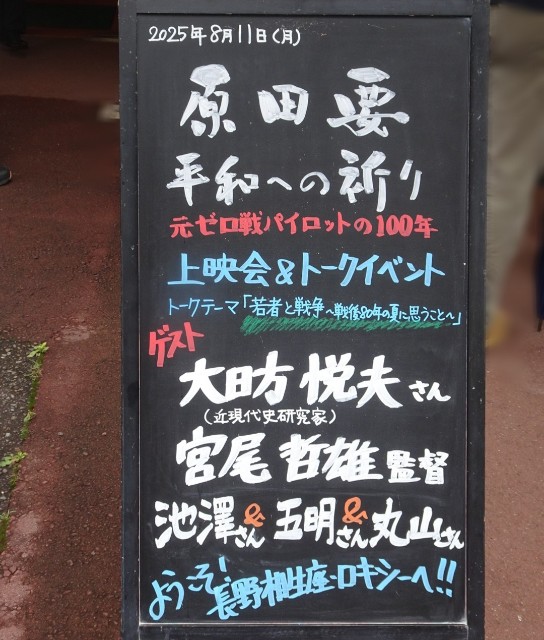 2025年8月11日(月)
原田要
平和への祈り
元ゼロ戦パイロットの100年
上映会&トークイベント
トークテーマ「若者と戦争〜戦後80年の夏に思うこと〜」
ゲスト
大日方悦夫さん
(近現代史研究家)
宮尾哲雄監督
池澤さん&五明さん&丸山さん
ようこそ!長野相生座・ロキシーへ!!